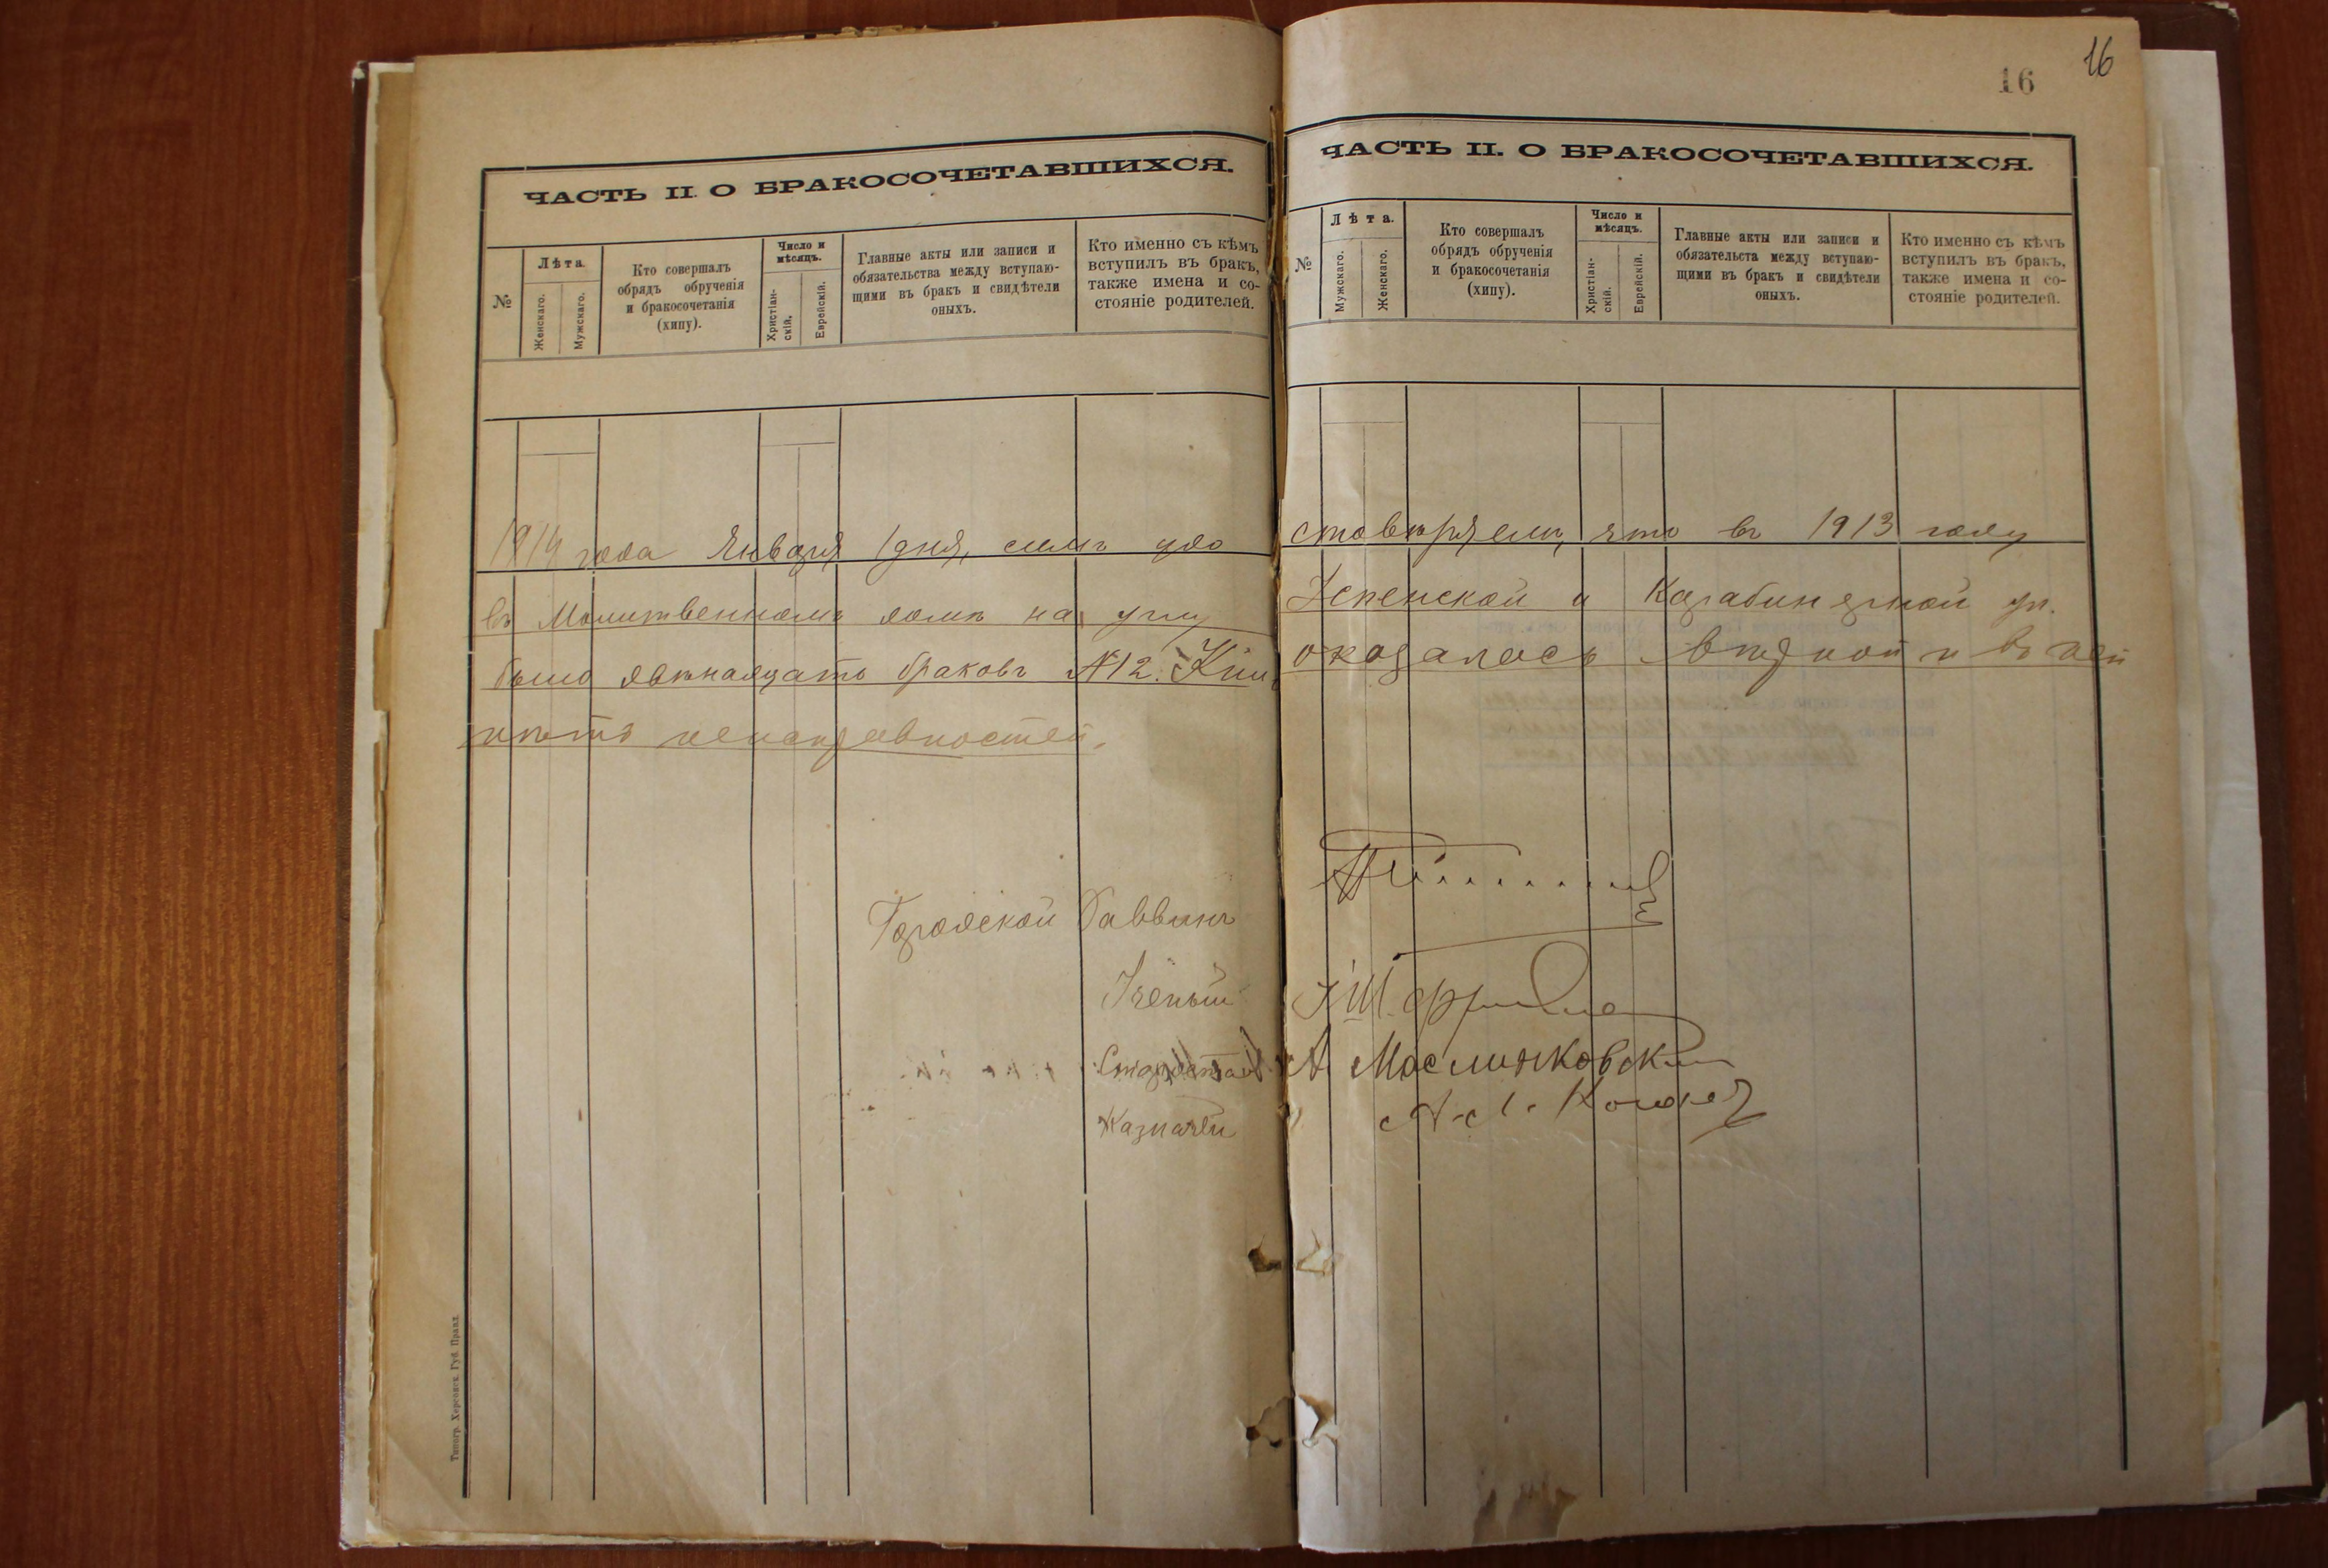 16
16
ЧАСТЬ II. О БРАКОСОЧЕТАВШИХСЯ.
№
Лѣта.
Женскаго.
Мужскаго.
Кто совершалъ
обрядъ обрученія
и бракосочетанія
(хипу).
Число и
мѣсяцъ.
Христіан-
скій.
Еврейскій.
Главные акты или записи и
обязательства между вступаю-
щими въ бракъ и свидѣтели
оныхъ.
Кто именно съ кѣмъ
вступилъ въ бракъ,
также имена и со-
стояніе родителей.
1914 года Января 1 дня, симъ удо
въ Молитвенномъ домѣ на углу
было двѣнадцать браковъ №12. Кни
нѣтъ неисправностей.
Городской Раввинъ
Ученый
Староста
Казначей
Типогр. Херсонск. Губ. Правл.
ЧАСТЬ II. О БРАКОСОЧЕТАВШИХСЯ.
№
Лѣта.
Мужскаго.
Женскаго.
Кто совершалъ
обрядъ обрученія
и бракосочетанія
(хипу).
Число и
мѣсяцъ.
Христіан-
скій.
Еврейскій.
Главные акты или записи и
обязательста между вступаю-
щими въ бракъ и свидѣтели
оныхъ.
Кто именно съ кѣмъ
вступилъ въ бракъ,
также имена и со-
стояніе родителей.
стовѣряемъ, что въ 1913 году
Успенской и Карабинерной ул.
оказалось вѣрной и въ ней
А. Маслияковский